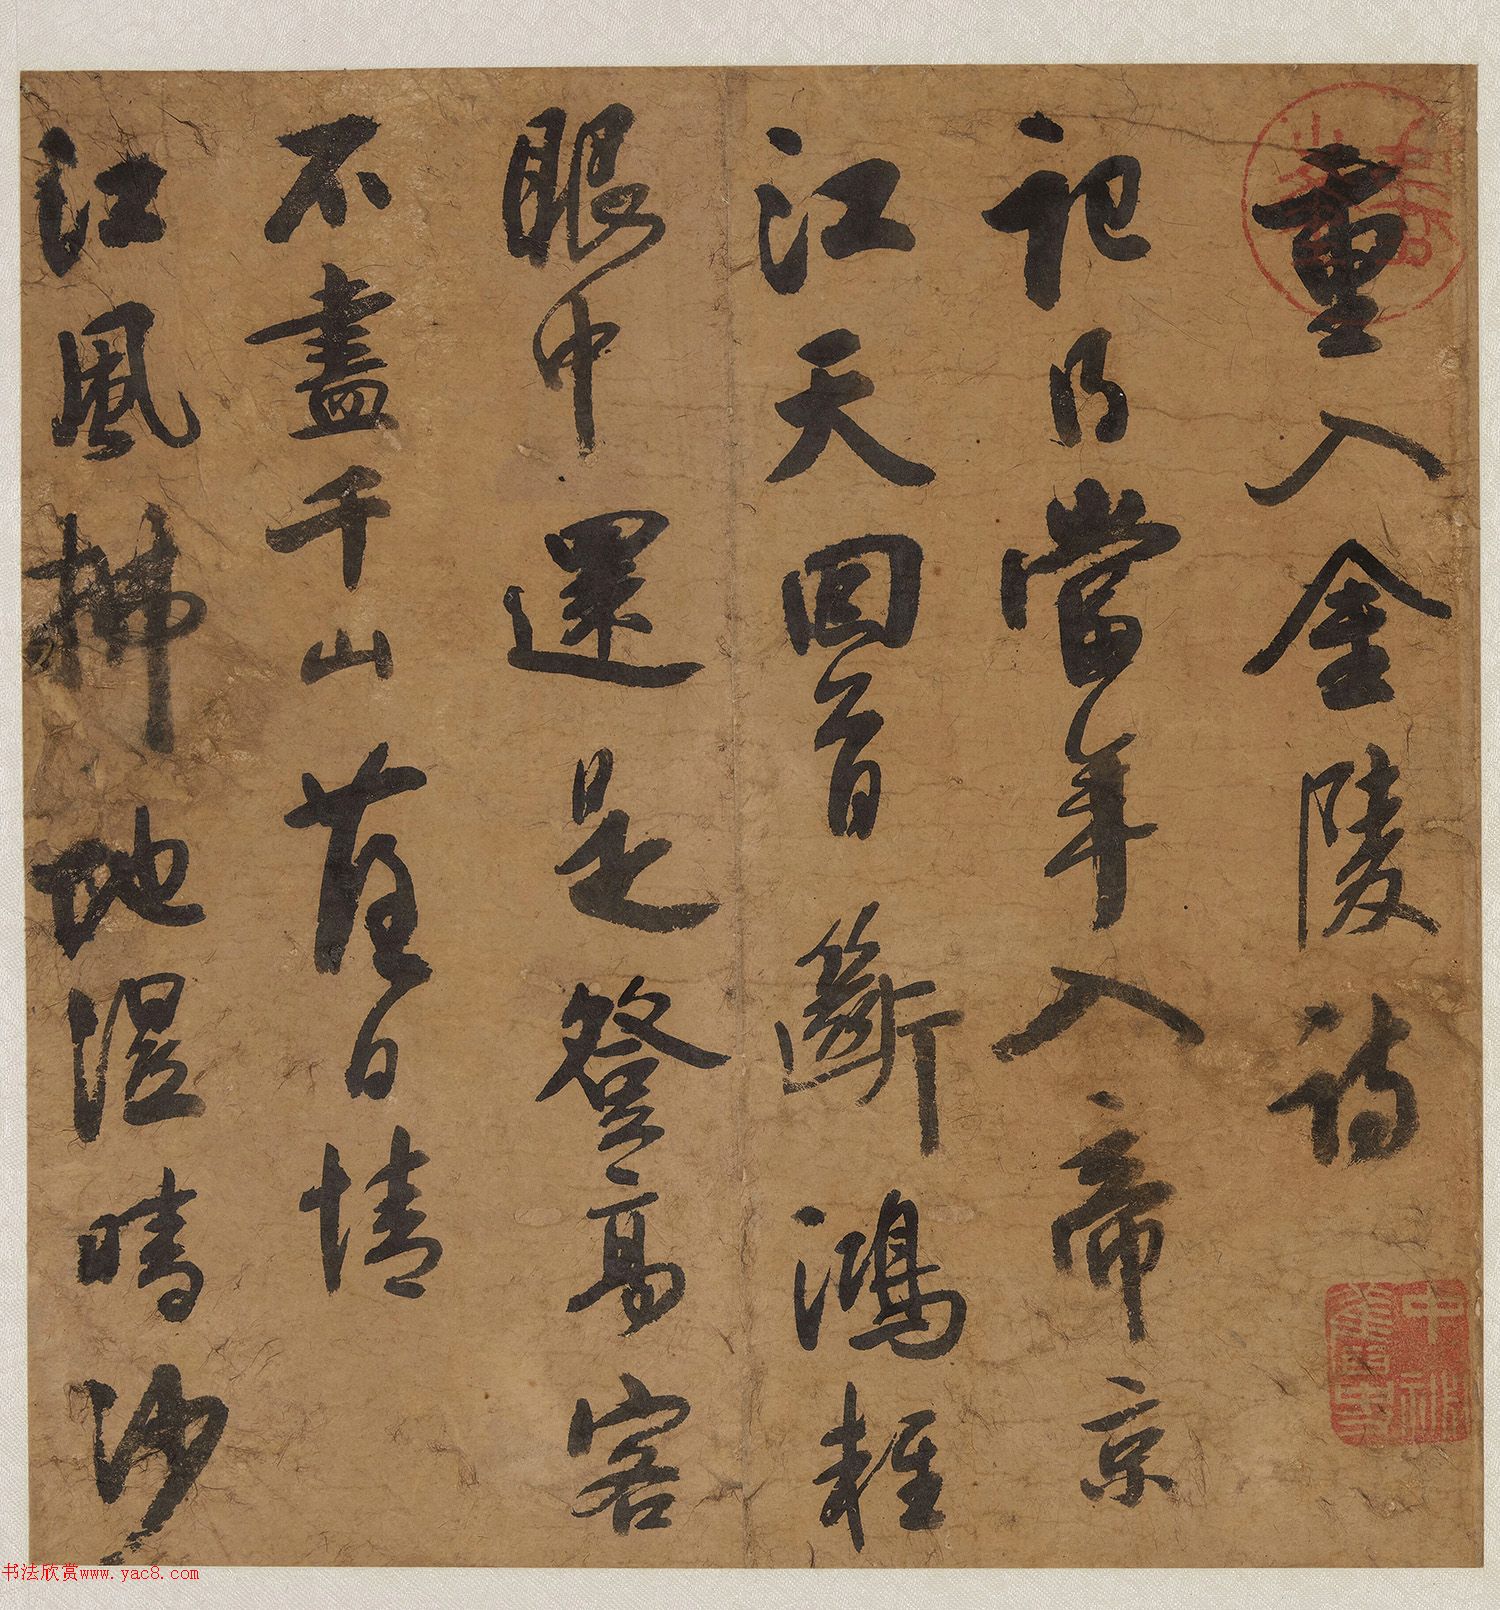 重入金陵詩
記得當年入帝京
江天回首斷鴻輕
眼中還是登高客
不盡千山舊日情
江風拂地晴沙
书法欣赏www.yac8.com